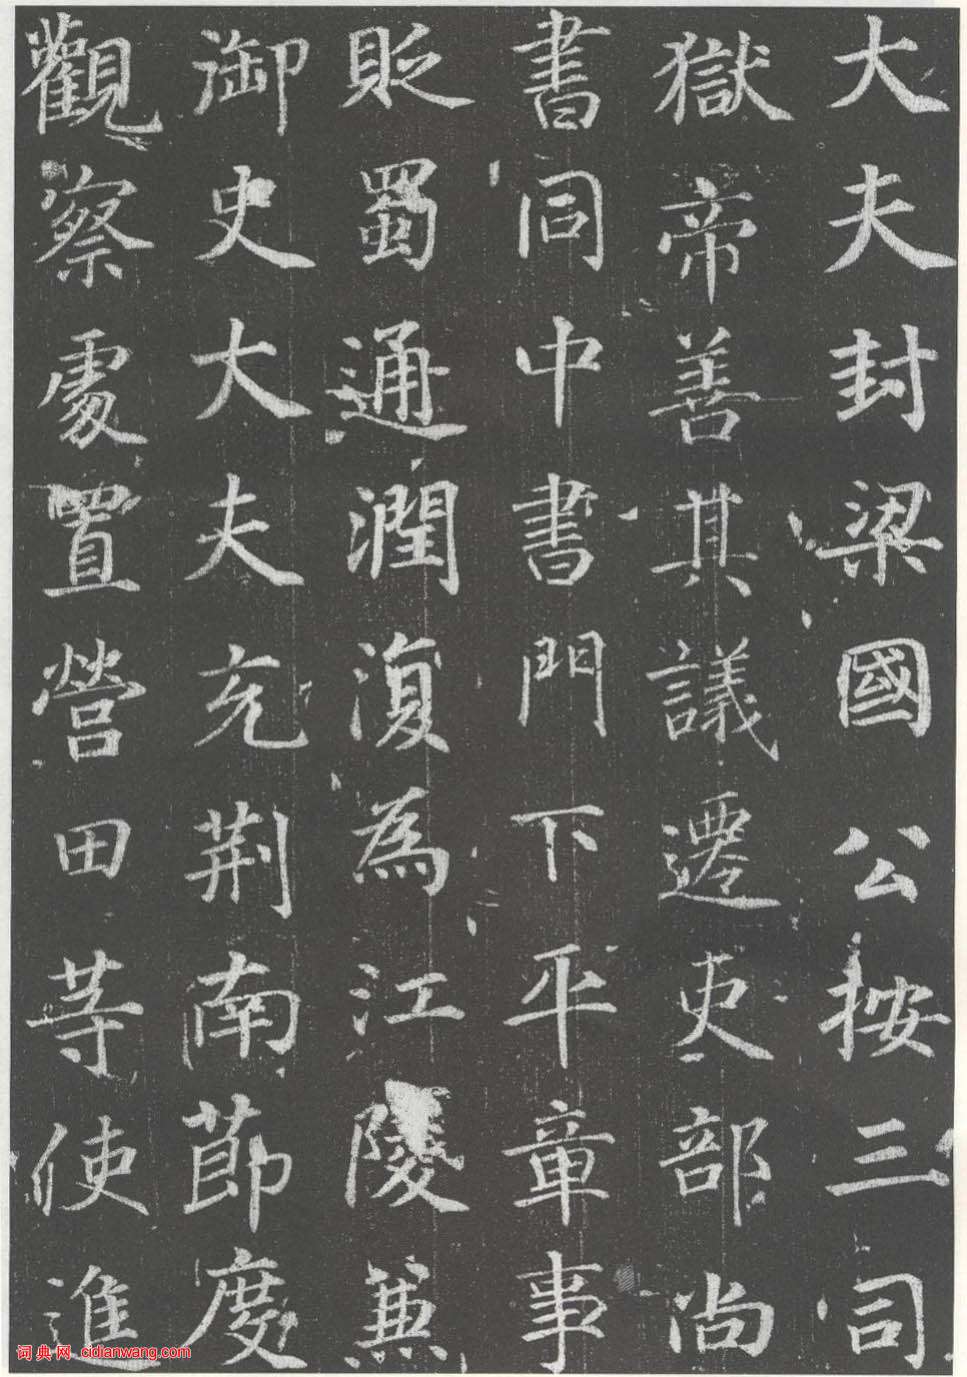 大夫封梁國公按三司
獄帝善其議遷吏部尚
書同中書門下平章事
貶蜀通潤復為江陵兼
御史大夫充荆南節度
觀察處置營田等使進
词典网 cidianwang.com